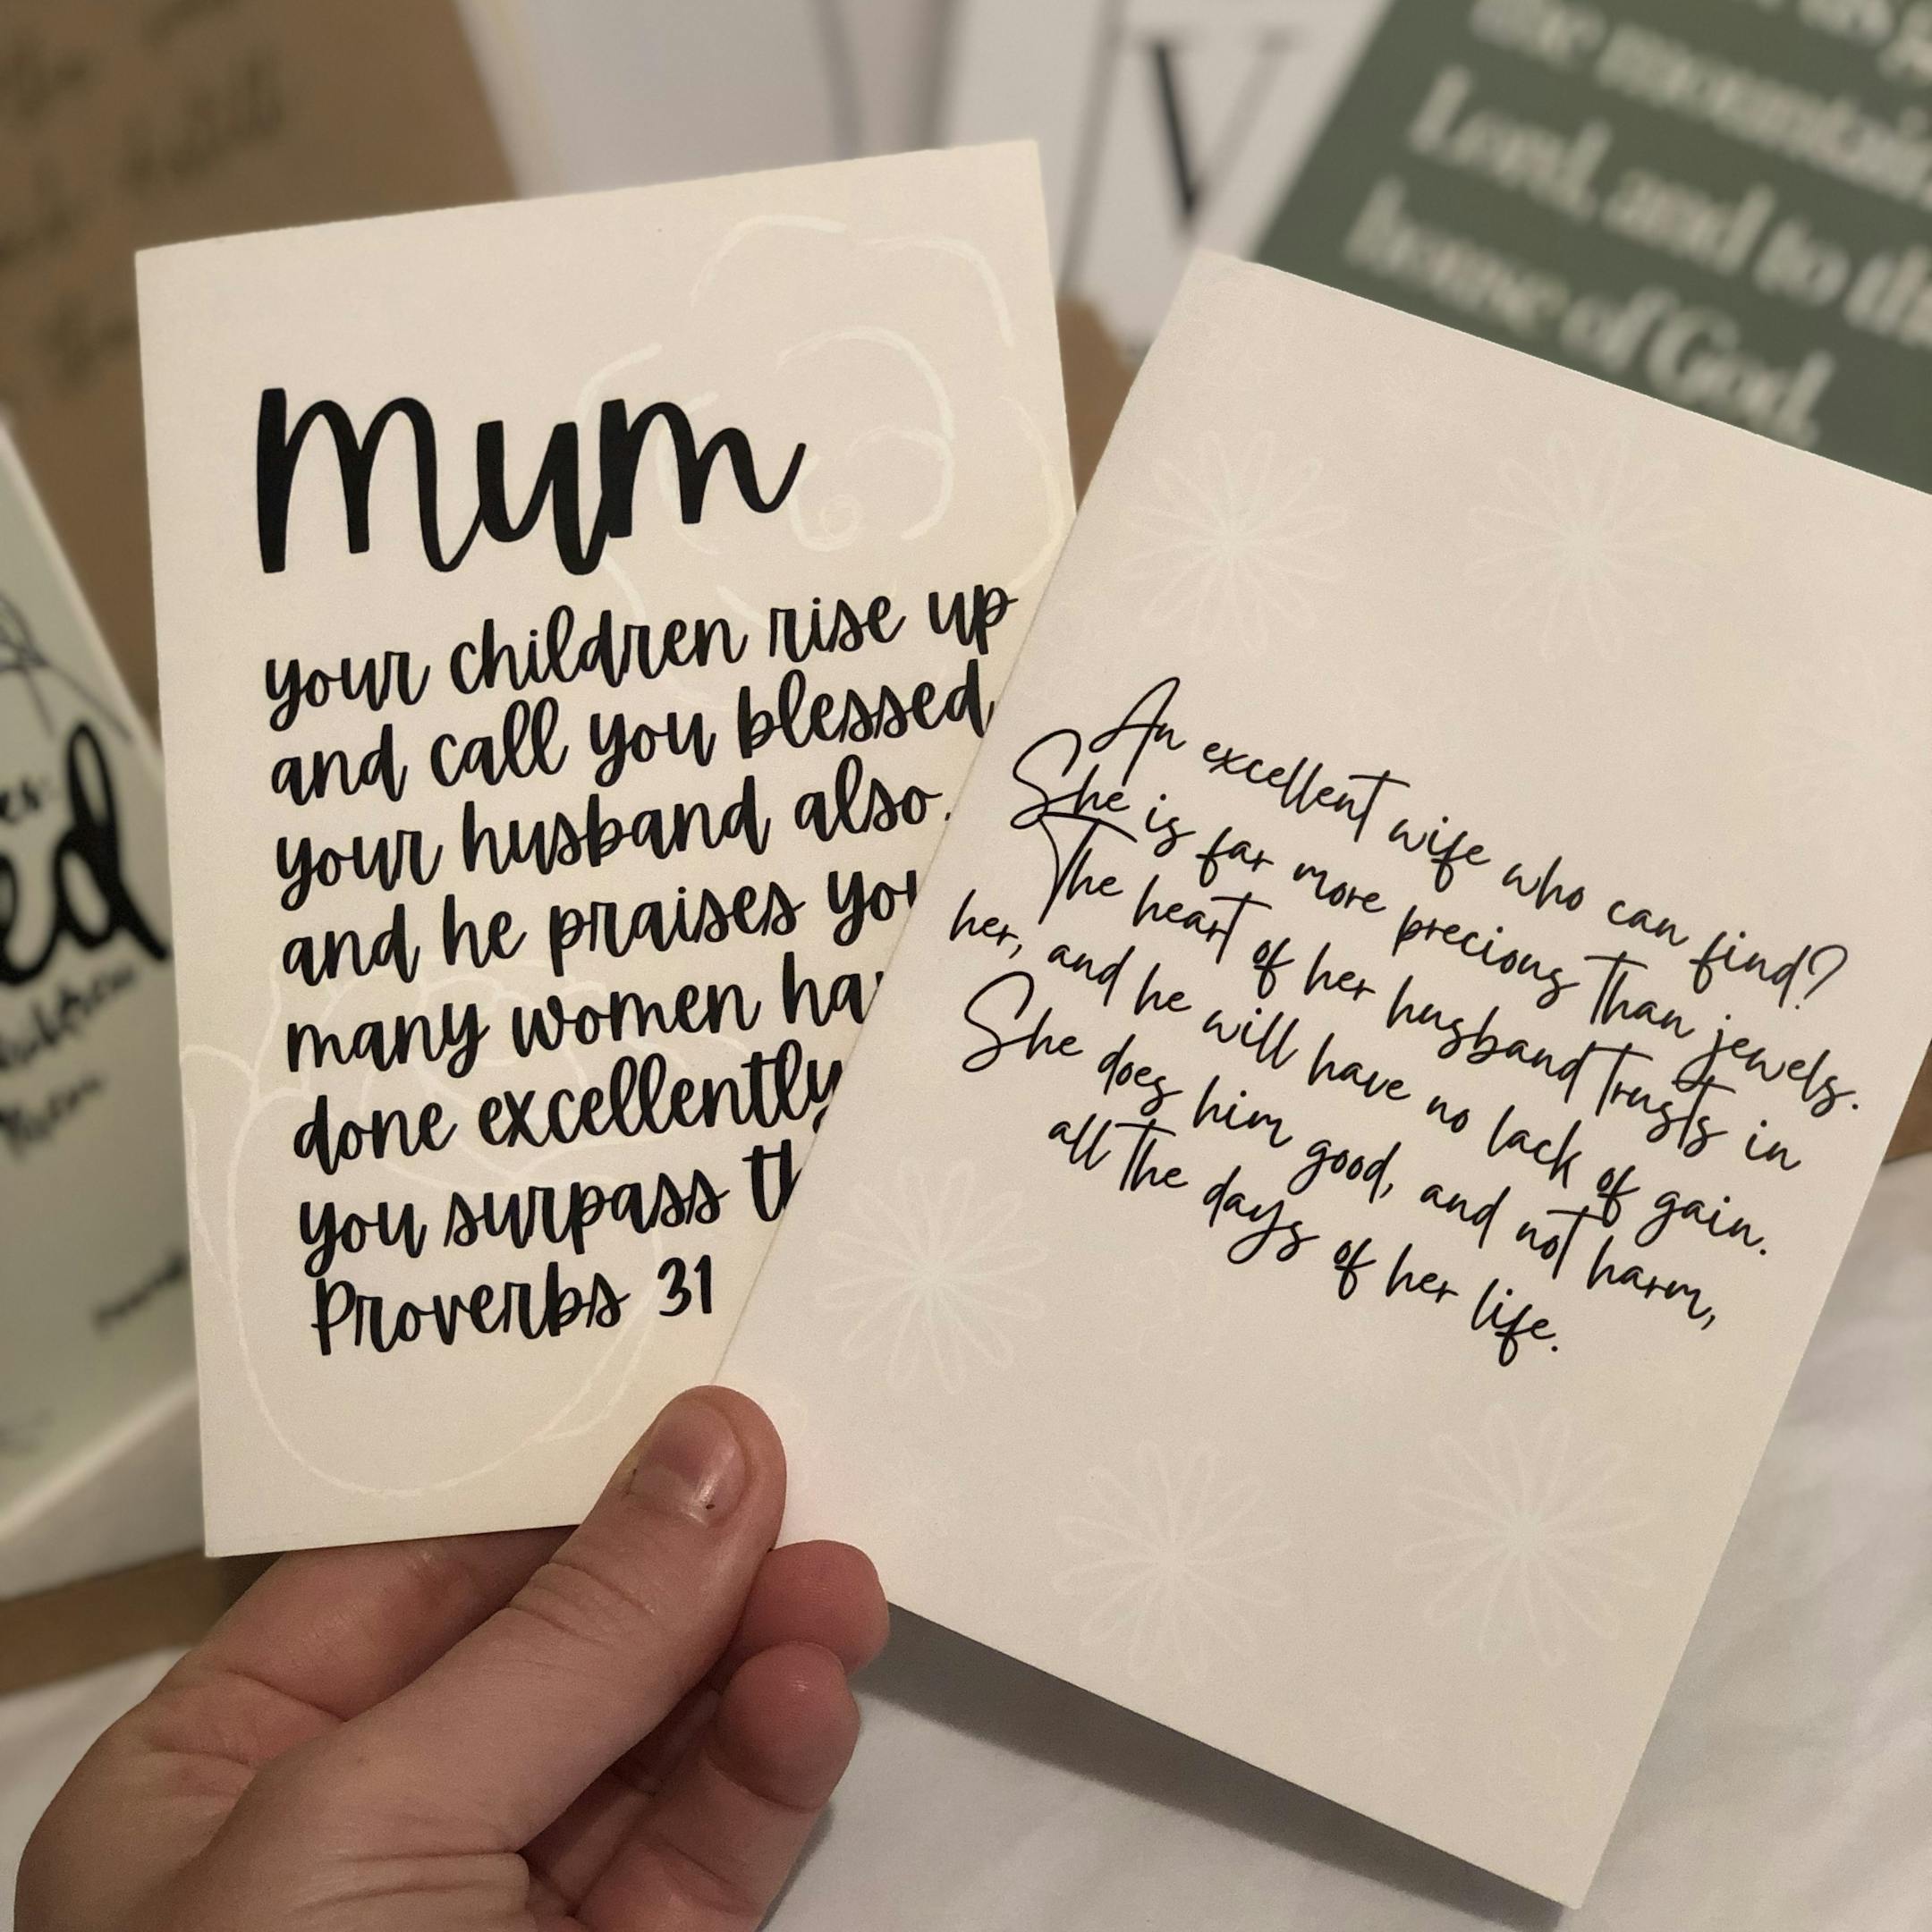 Mum
your children rise up
and call you blessed,
your husband also.
and he praises
many women
done excellently
you surpass
Proverbs 31
An excellent wife who can find?
She is far more precious than jewels.
The heart of her husband trusts in
her, and he will have no lack of gain.
She does him good, and not harm,
all the days of her life.
the mountain
Lord, and to the
house of God,
V
ed